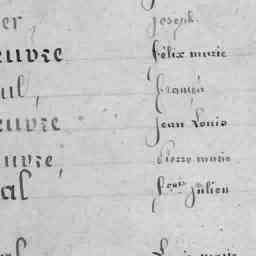 er Joseph.
euvre félix marie
ul, françois
euvre jean Louis
euvre, Pierre marie
al Louis julien